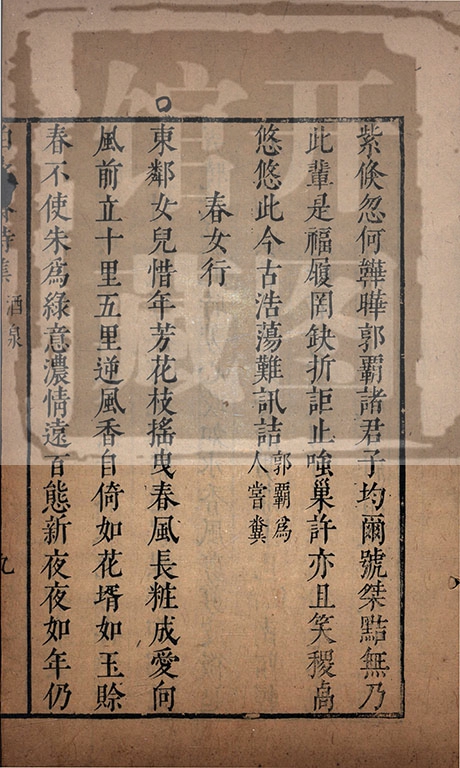 紫倏忽何韡曄郭霸諸君子均爾號桀黠無乃
此輩是福履罔缺折詎止嗤巢許亦且笑稷卨
悠悠此今古浩蕩難訊詰郭霸為人嘗糞
春女行
東鄰女兒惜年芳花枝搖曳春風長粧成愛向
風前立十里五里逆風香自倚如花壻如玉賒
春不使朱爲綠意濃情遠百態新夜夜如年仍
詩集 酒泉 九
开图馆藏